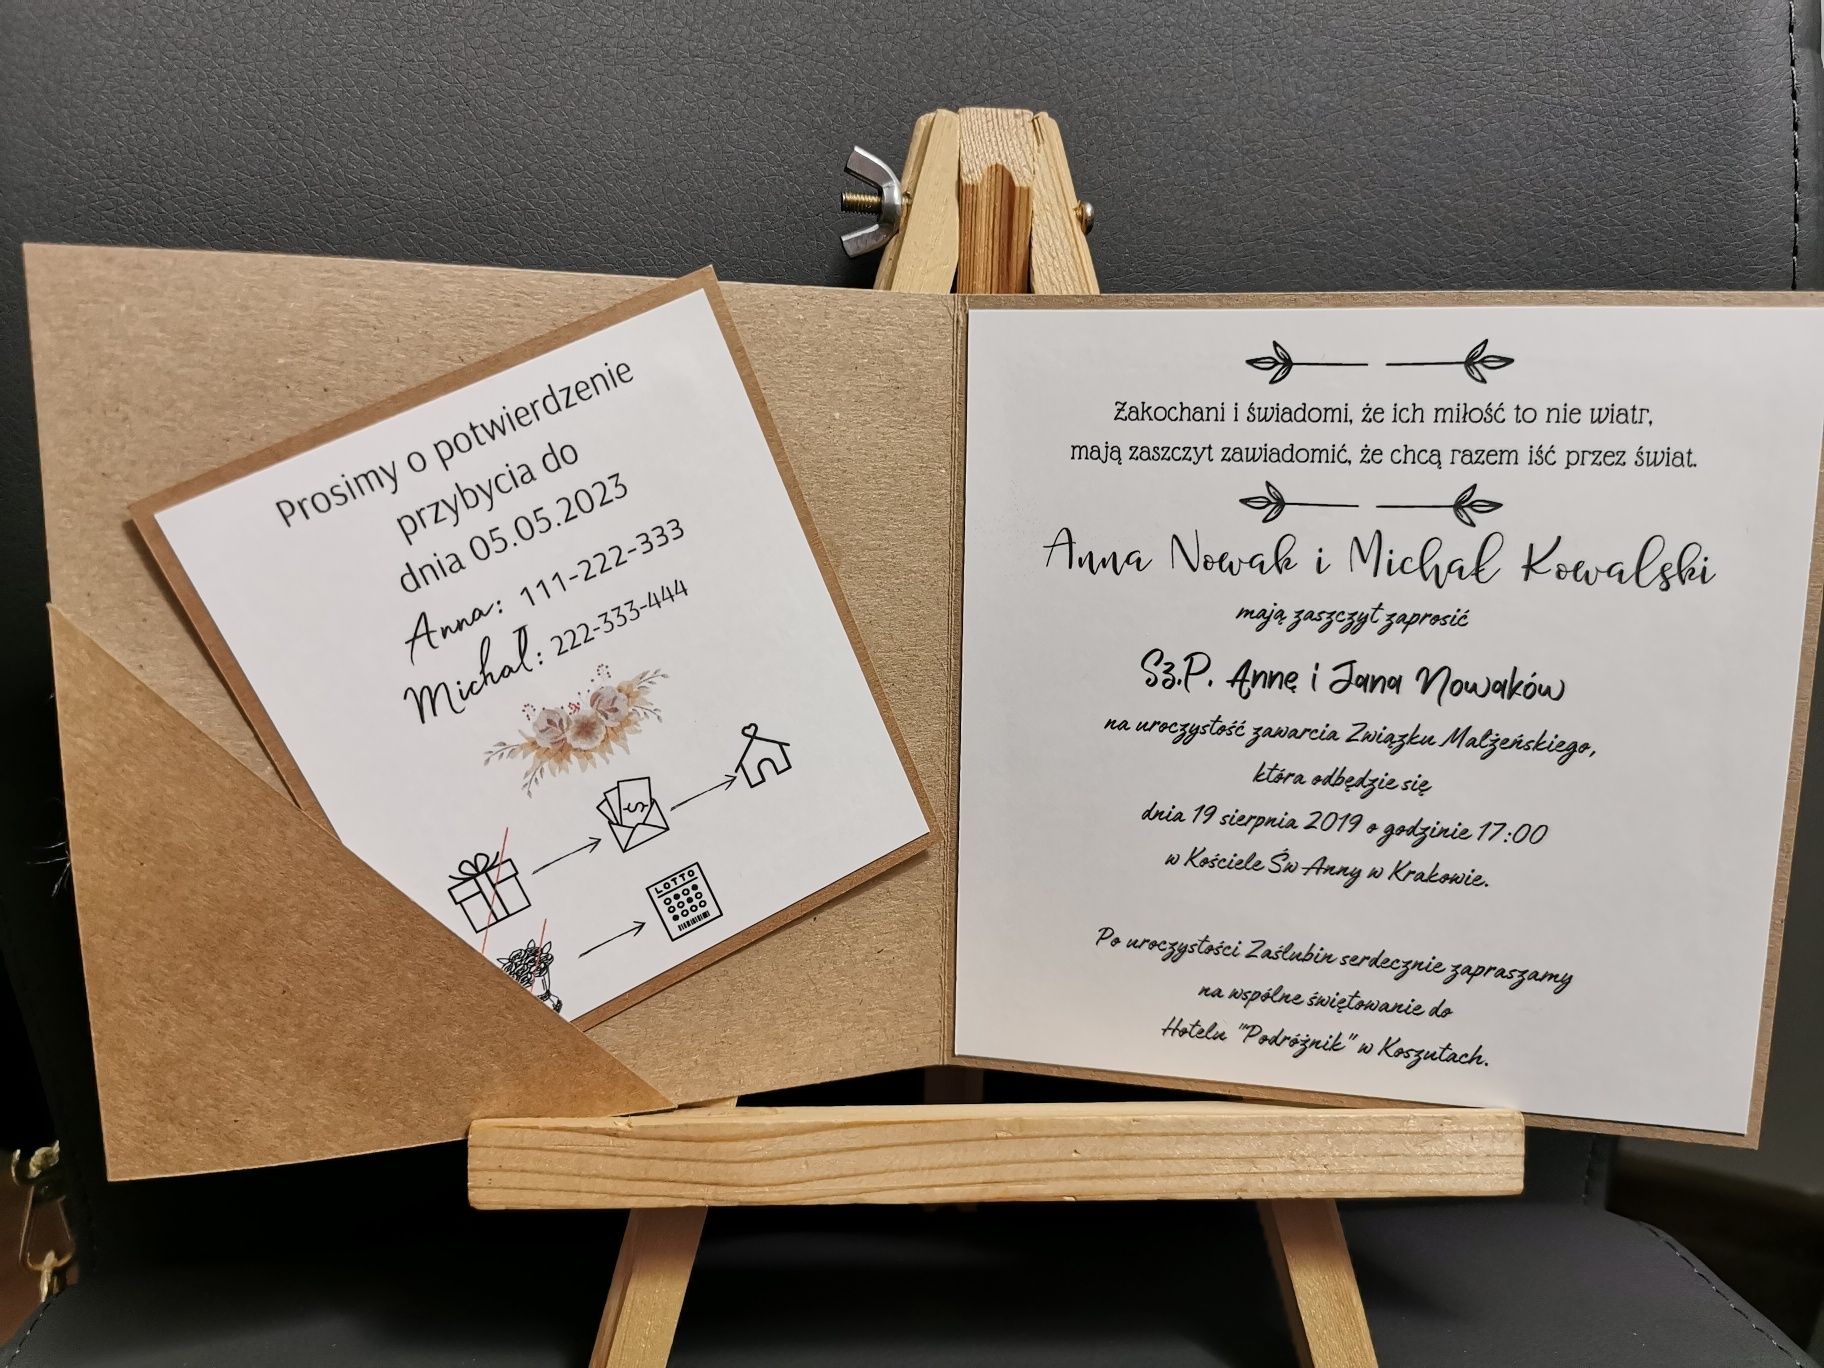 Prosimy o potwierdzenie
przybycia do
dnia 05.05.2023
Anna: 111-222-333
Michał: 222-333-444
LOTTO
Zakochani i świadomi, że ich miłość to nie wiatr,
mają zaszczyt zawiadomić, że chcą razem iść przez świat.
Anna Nowak i Michał Kowalski
mają zaszczyt zaprosić
Sz.P. Annę i Jana Nowaków
na uroczystość zawarcia Związku Małżeńskiego,
która odbędzie się
dnia 19 sierpnia 2019 o godzinie 17:00
w Kościele Św Anny w Krakowie.
Po uroczystości Zaślubin serdecznie zapraszamy
na wspólne świętowanie do
Hotelu "Podróżnik" w Koszutach.